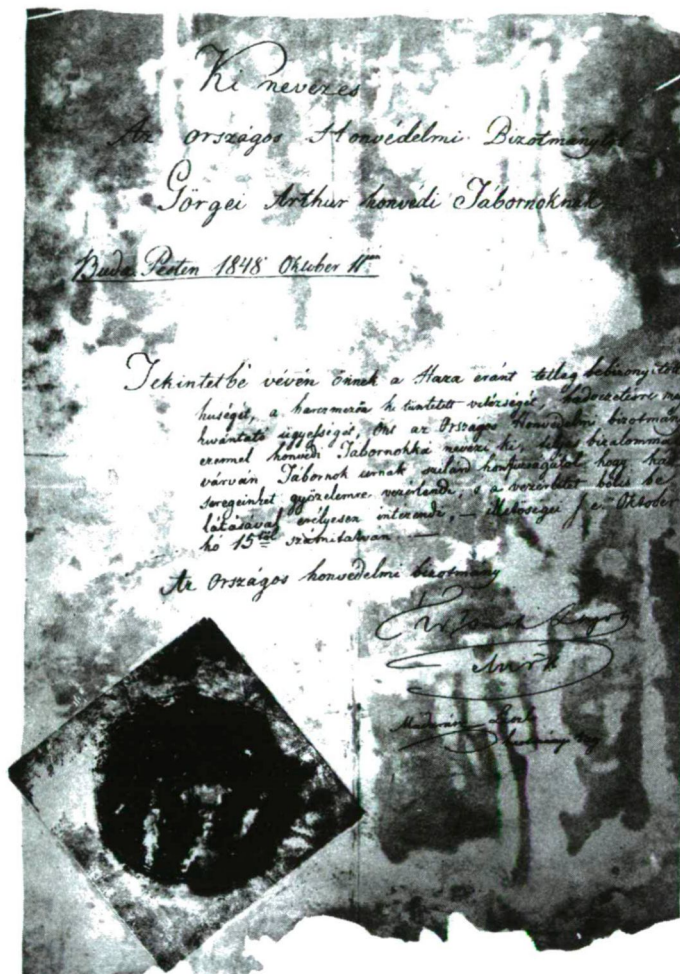 Ki nevezes
Az országos Honvédelmi Bizotmánytol
Görgei Arthur honvédi Tábornoknak
Buda Pesten 1848 Oktober
Tekintetbe vévén önnek a Haza eránt tetleg bebizonyitott
huségét, a harczmezőn ki tüntetett vitézségét,
ügyességét, Önt az Országos Honvédelmi bizotmány
ezennel honvédi Tábornokká nevezi ki, teljes bizalommal
várván Tábornok urnak szilárd honfiuságátol hogy
seregeinket győzelemre vezérlendi, s a vezérletet bölcs be
látásával erélyesen intézendi, — illetőségei f. e. Oktober
hó 15től számitatván —
Az Országos honvédelmi bizotmány
László